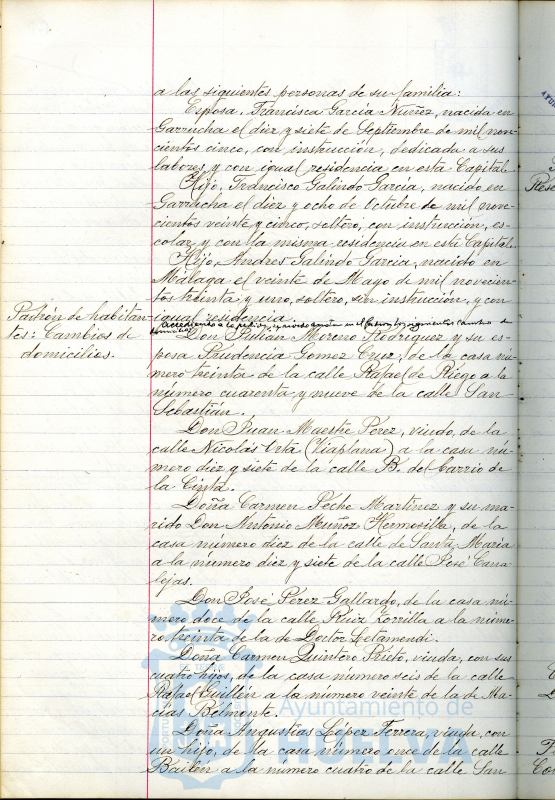 a las siguientes personas de su familia:
Esposa, Francisca García Nuñez, nacida en
Garrucha el diez y siete de Septiembre de mil nove-
cientos cinco, con instrucción, dedicada a sus
labores y con igual residencia en esta Capital.
Hijo, Francisco Galindo García, nacido en
Garrucha el diez y ocho de Octubre de mil nove-
cientos veinte y cinco, soltero, con instrucción, es-
colar, y con la misma residencia en esta Capital.
Hijo, Andres Galindo García, nacido en
Málaga el veinte de Mayo de mil novecien-
tos treinta y uno, soltero, sin instrucción, y con
igual residencia.
Padrón de habitan-
tes: Cambios de
domicilios.
Accediendo a lo pedido, en el Padrón los siguientes cambios de
domicilios
Don Julian Moreno Rodriguez y su es-
posa Prudencia Gomez Cruz, de la casa nú-
mero treinta de la calle Rafael de Riego a la
número cuarenta y nueve de la calle San
Sebastián.
Don Juan Maestre Pérez, viudo, de la
calle Nicolás Orta (Viaplana) a la casa nú-
mero diez y siete de la calle B. del barrio de
la Cinta.
Doña Carmen Peche Martinez y su ma-
rido Don Antonio Muñoz Hermosilla, de la
casa número diez de la calle de Santa María
a la número diez y siete de la calle José Cana-
lejas.
Don José Pérez Gallardo, de la casa nú-
mero doce de la calle Ruiz Zorrilla a la núme-
ro treinta de la de Doctor Letamendi.
Doña Carmen Quintero Prieto, viuda, con sus
cuatro hijos, de la casa número seis de la calle
Rafael Guillén a la número veinte de la de Ma-
cías Belmonte.
Doña Angustias López Ferrera, viuda, con
un hijo, de la casa número once de la calle
Bailén a la número cuatro de la calle San
Ayuntamiento de
HUELVA